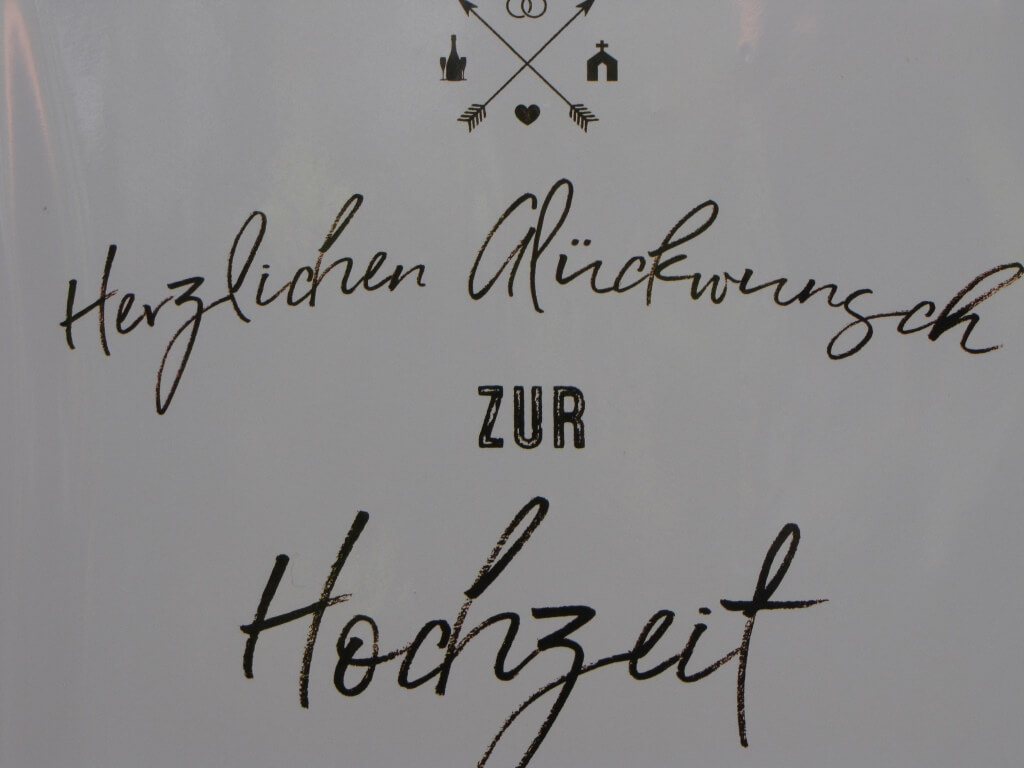 Herzlichen Glückwunsch
ZUR
Hochzeit